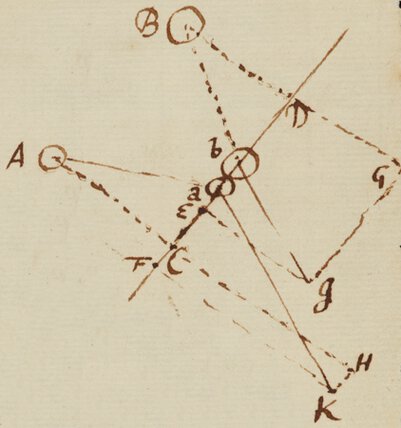 B
D
b
A
G
a
E
F
C
g
H
K